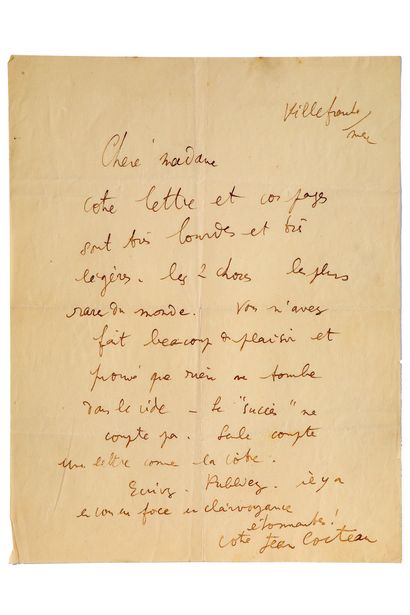 Villefranche
/mer
Chère madame
votre lettre et vos pages
sont très lourdes et très
légères. les 2 choses les plus
rare du monde. Vous m'avez
fait beaucoup de plaisir et
prouvé que rien ne tombe
dans le vide – Le "succès" ne
compte pas. Seule compte
une lettre comme la vôtre.
Ecrivez. Publiez. il y a
en vous une force en clairvoyance
étonnantes!
votre Jean Cocteau